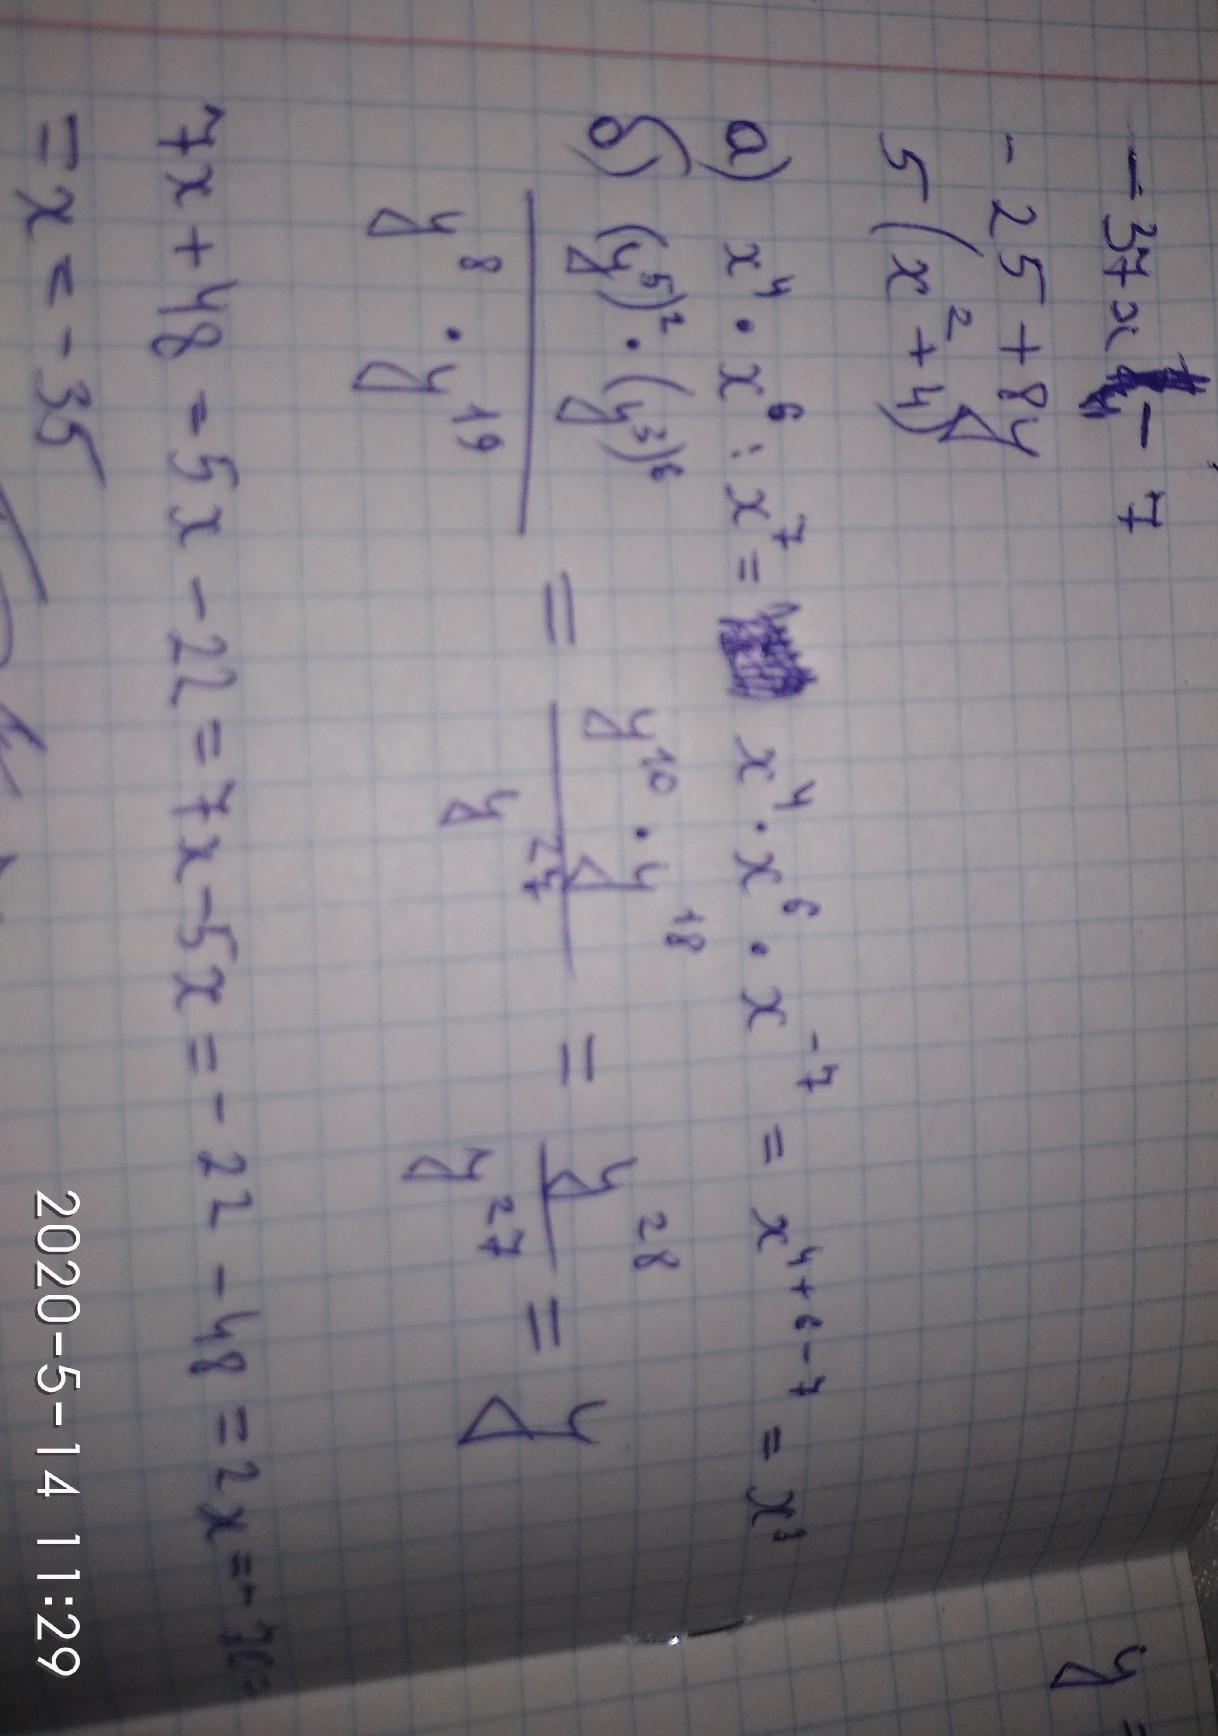 -37x - 7
-25+8y
5(x²+4)
а) x⁴ · x⁶ : x⁷ = x⁴ · x⁶ · x⁻⁷ = x⁴⁺⁶⁻⁷ = x³
б) (y⁵)² · (y³)⁶ / y⁸ · y¹⁹ = y¹⁰ · y¹⁸ / y²⁷ = y²⁸ / y²⁷ = y
7x+48 = 5x - 22 = 7x - 5x = -22 - 48 = 2x = -70 =
= x = -35
y =
2020-5-14 11:29